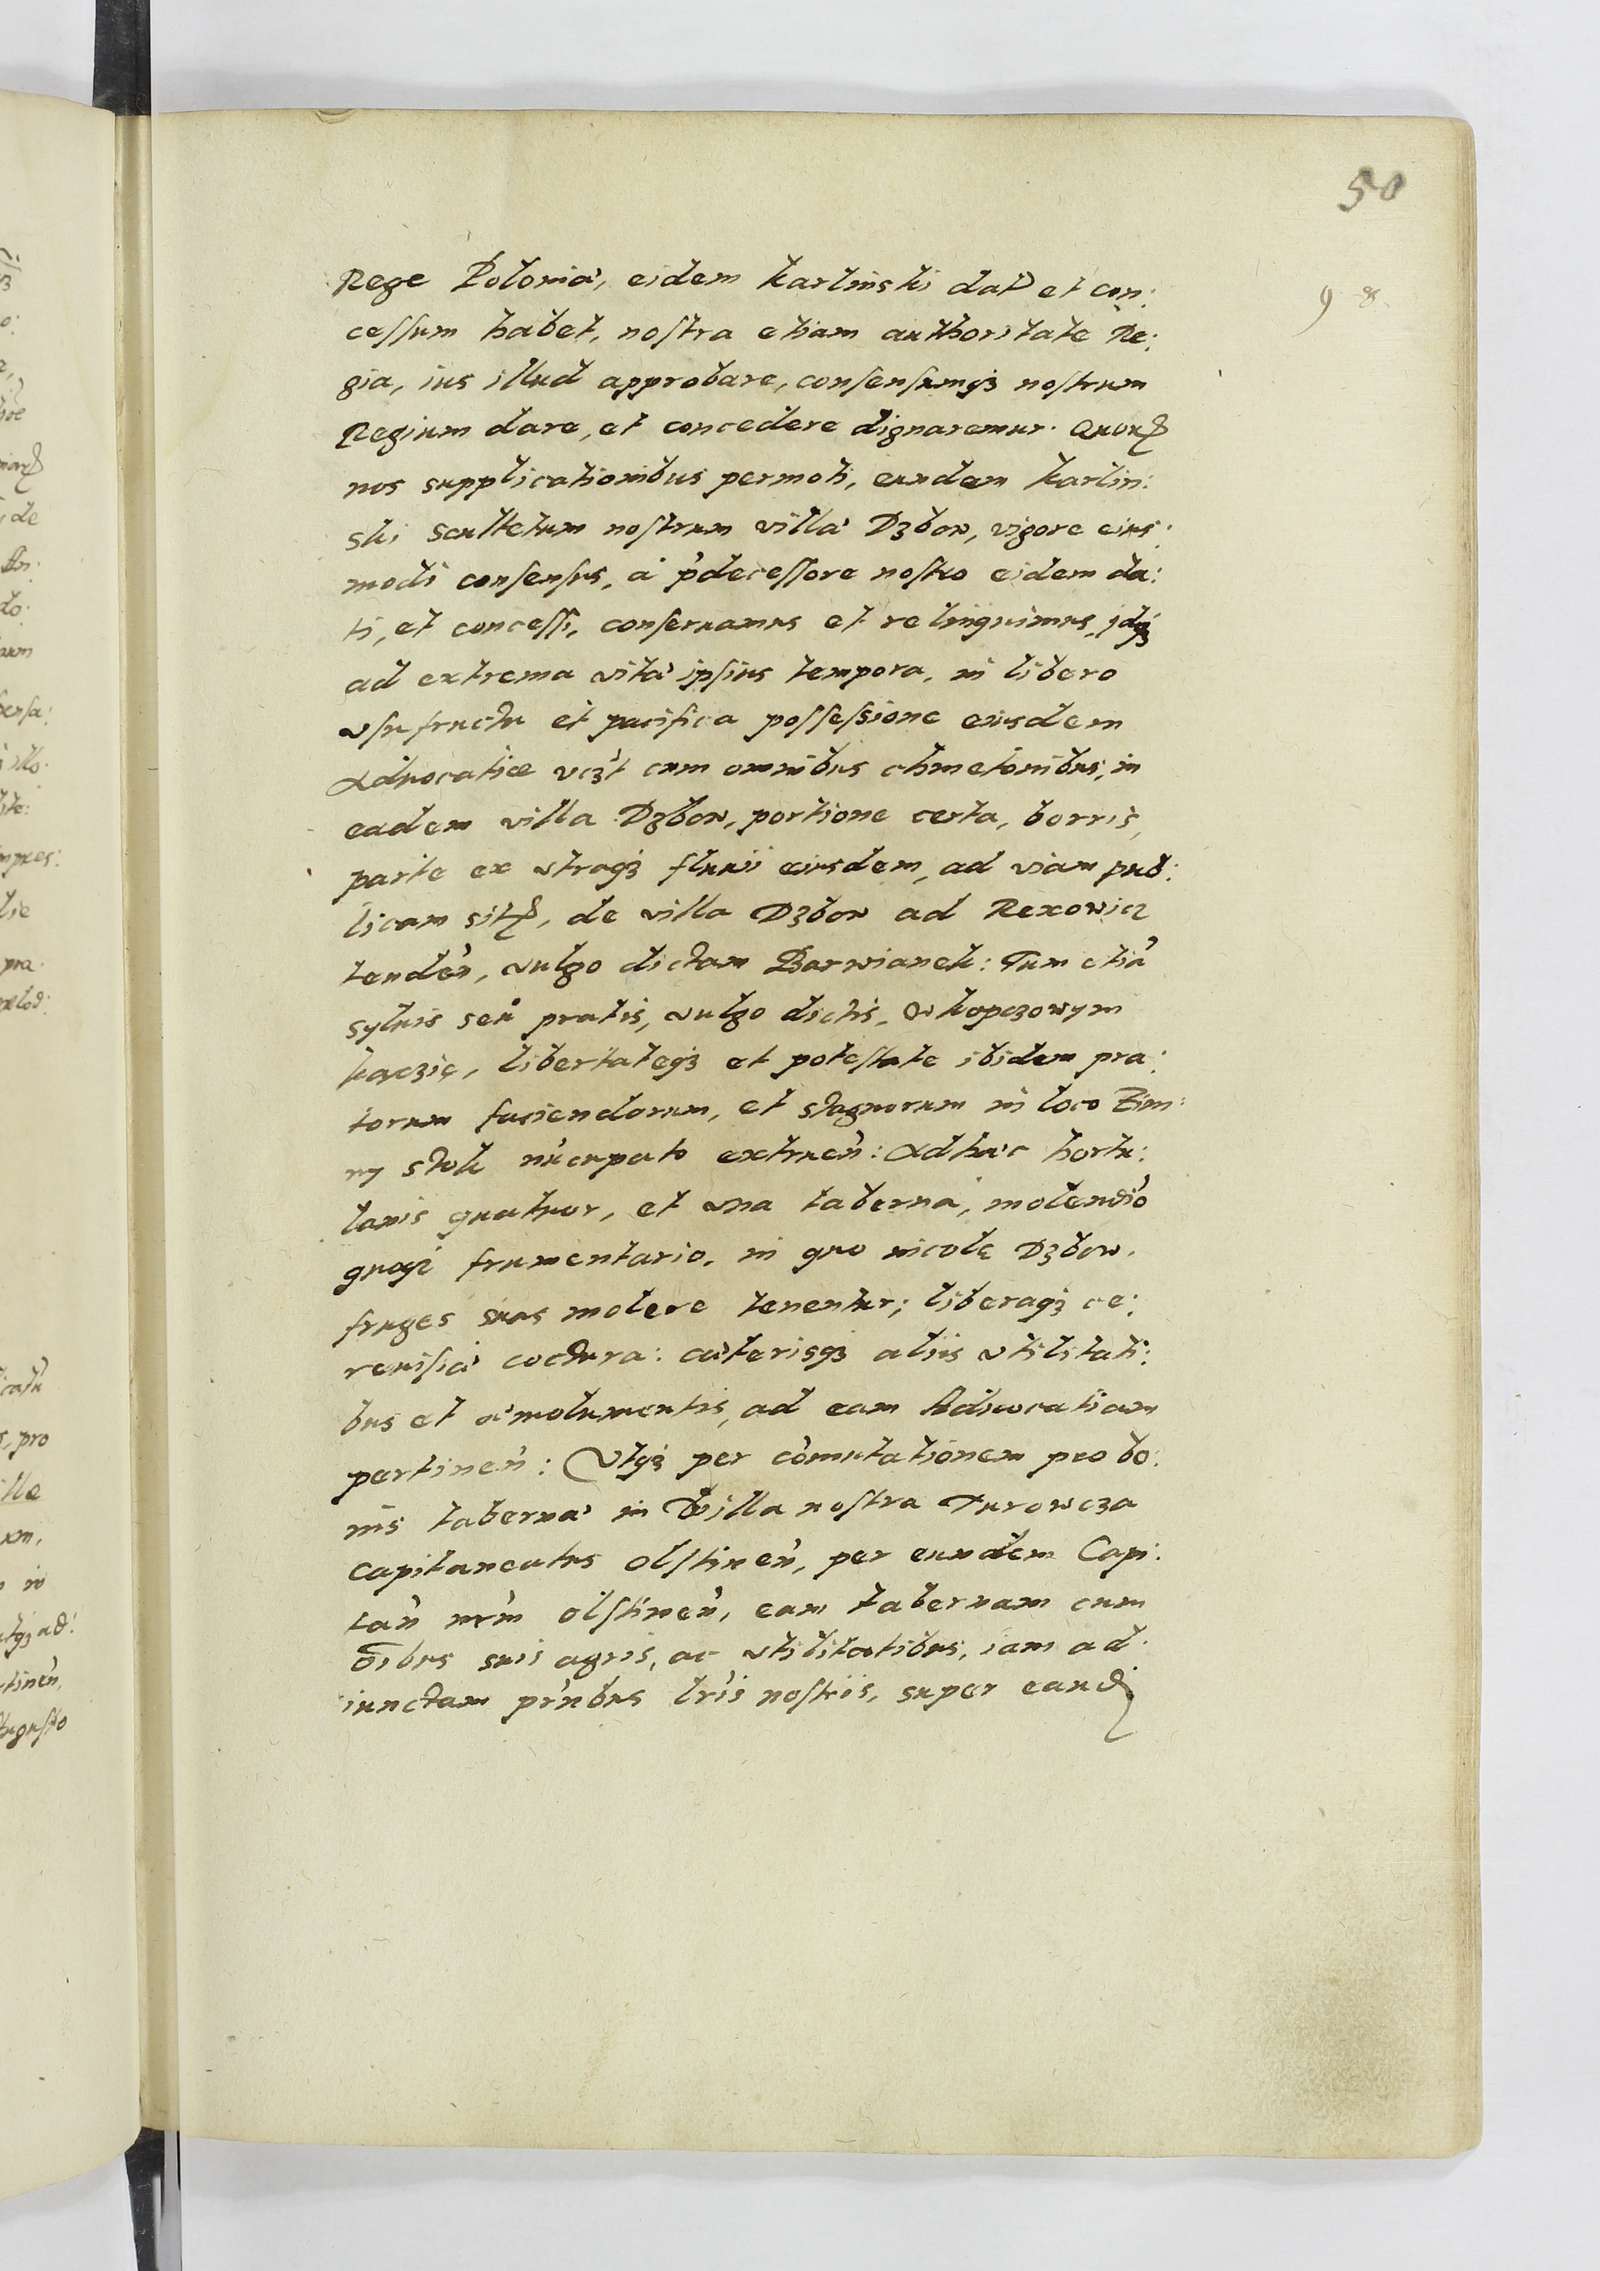 50
9 8.
Rege Poloniæ, eidem Karlinski dat et con:
cessum habet, nostra etiam authoritate Re:
gia, ius illud approbare, consensumqȝ nostrum
Regium dare, et concedere dignaremur. Quorꝝ
nos supplicationibus permoti, eundem Karlin:
ski Scultetum nostrum villæ Dzbow, vigore eius:
modi consensus, à p̓decessore nostro eidem da:
ti, et concessi, conseruamus et relinquimus, idqȝ
ad extrema vitæ ipsius tempora, in libero
vsufructu et pacifica possessione eiusdem
Aduocatiæ vcȝt cum omnibus chmetonibus, in
eadem villa Dzbow, portione certa, borris,
parte ex vtraqȝ fluuii eiusdem, ad viam pub:
licam sitꝝ, de villa Dzbow ad Rexowicz
tendeń, vulgo dictam Barwianek: Tum etiã
syluis seu pratis, vulgo dictis, W kopczowym
kączie, libertateqȝ et potestate ibidem pra:
torum faciendorum, et stagnorum in loco Zim:
ny stok nũcupato extrueń: Ad hæc hortu:
lanis quatuor, et vna taberna, molendiõ
quoqȝ frumentario, in quo incolę Dzbow.
fruges suas molere tenentur; liberaqȝ ce:
reuisiæ coctura: cæterisqȝ aliis vtilitati:
bus et æmolumentis, ad eam Aduocatiam
pertineń: Vtqȝ per cõmutationem pro bo:
nis tabernæ in Villa nostra Turowcza
Capitaneatus Olstineń, per eundem Capi:
tań nrm̃ Olstineń, eam tabernam cum
oĩbus suis agris, ac vtilitatibus, iam ad:
iunctam pñtibus lrĩs nostris, super eandꝫ